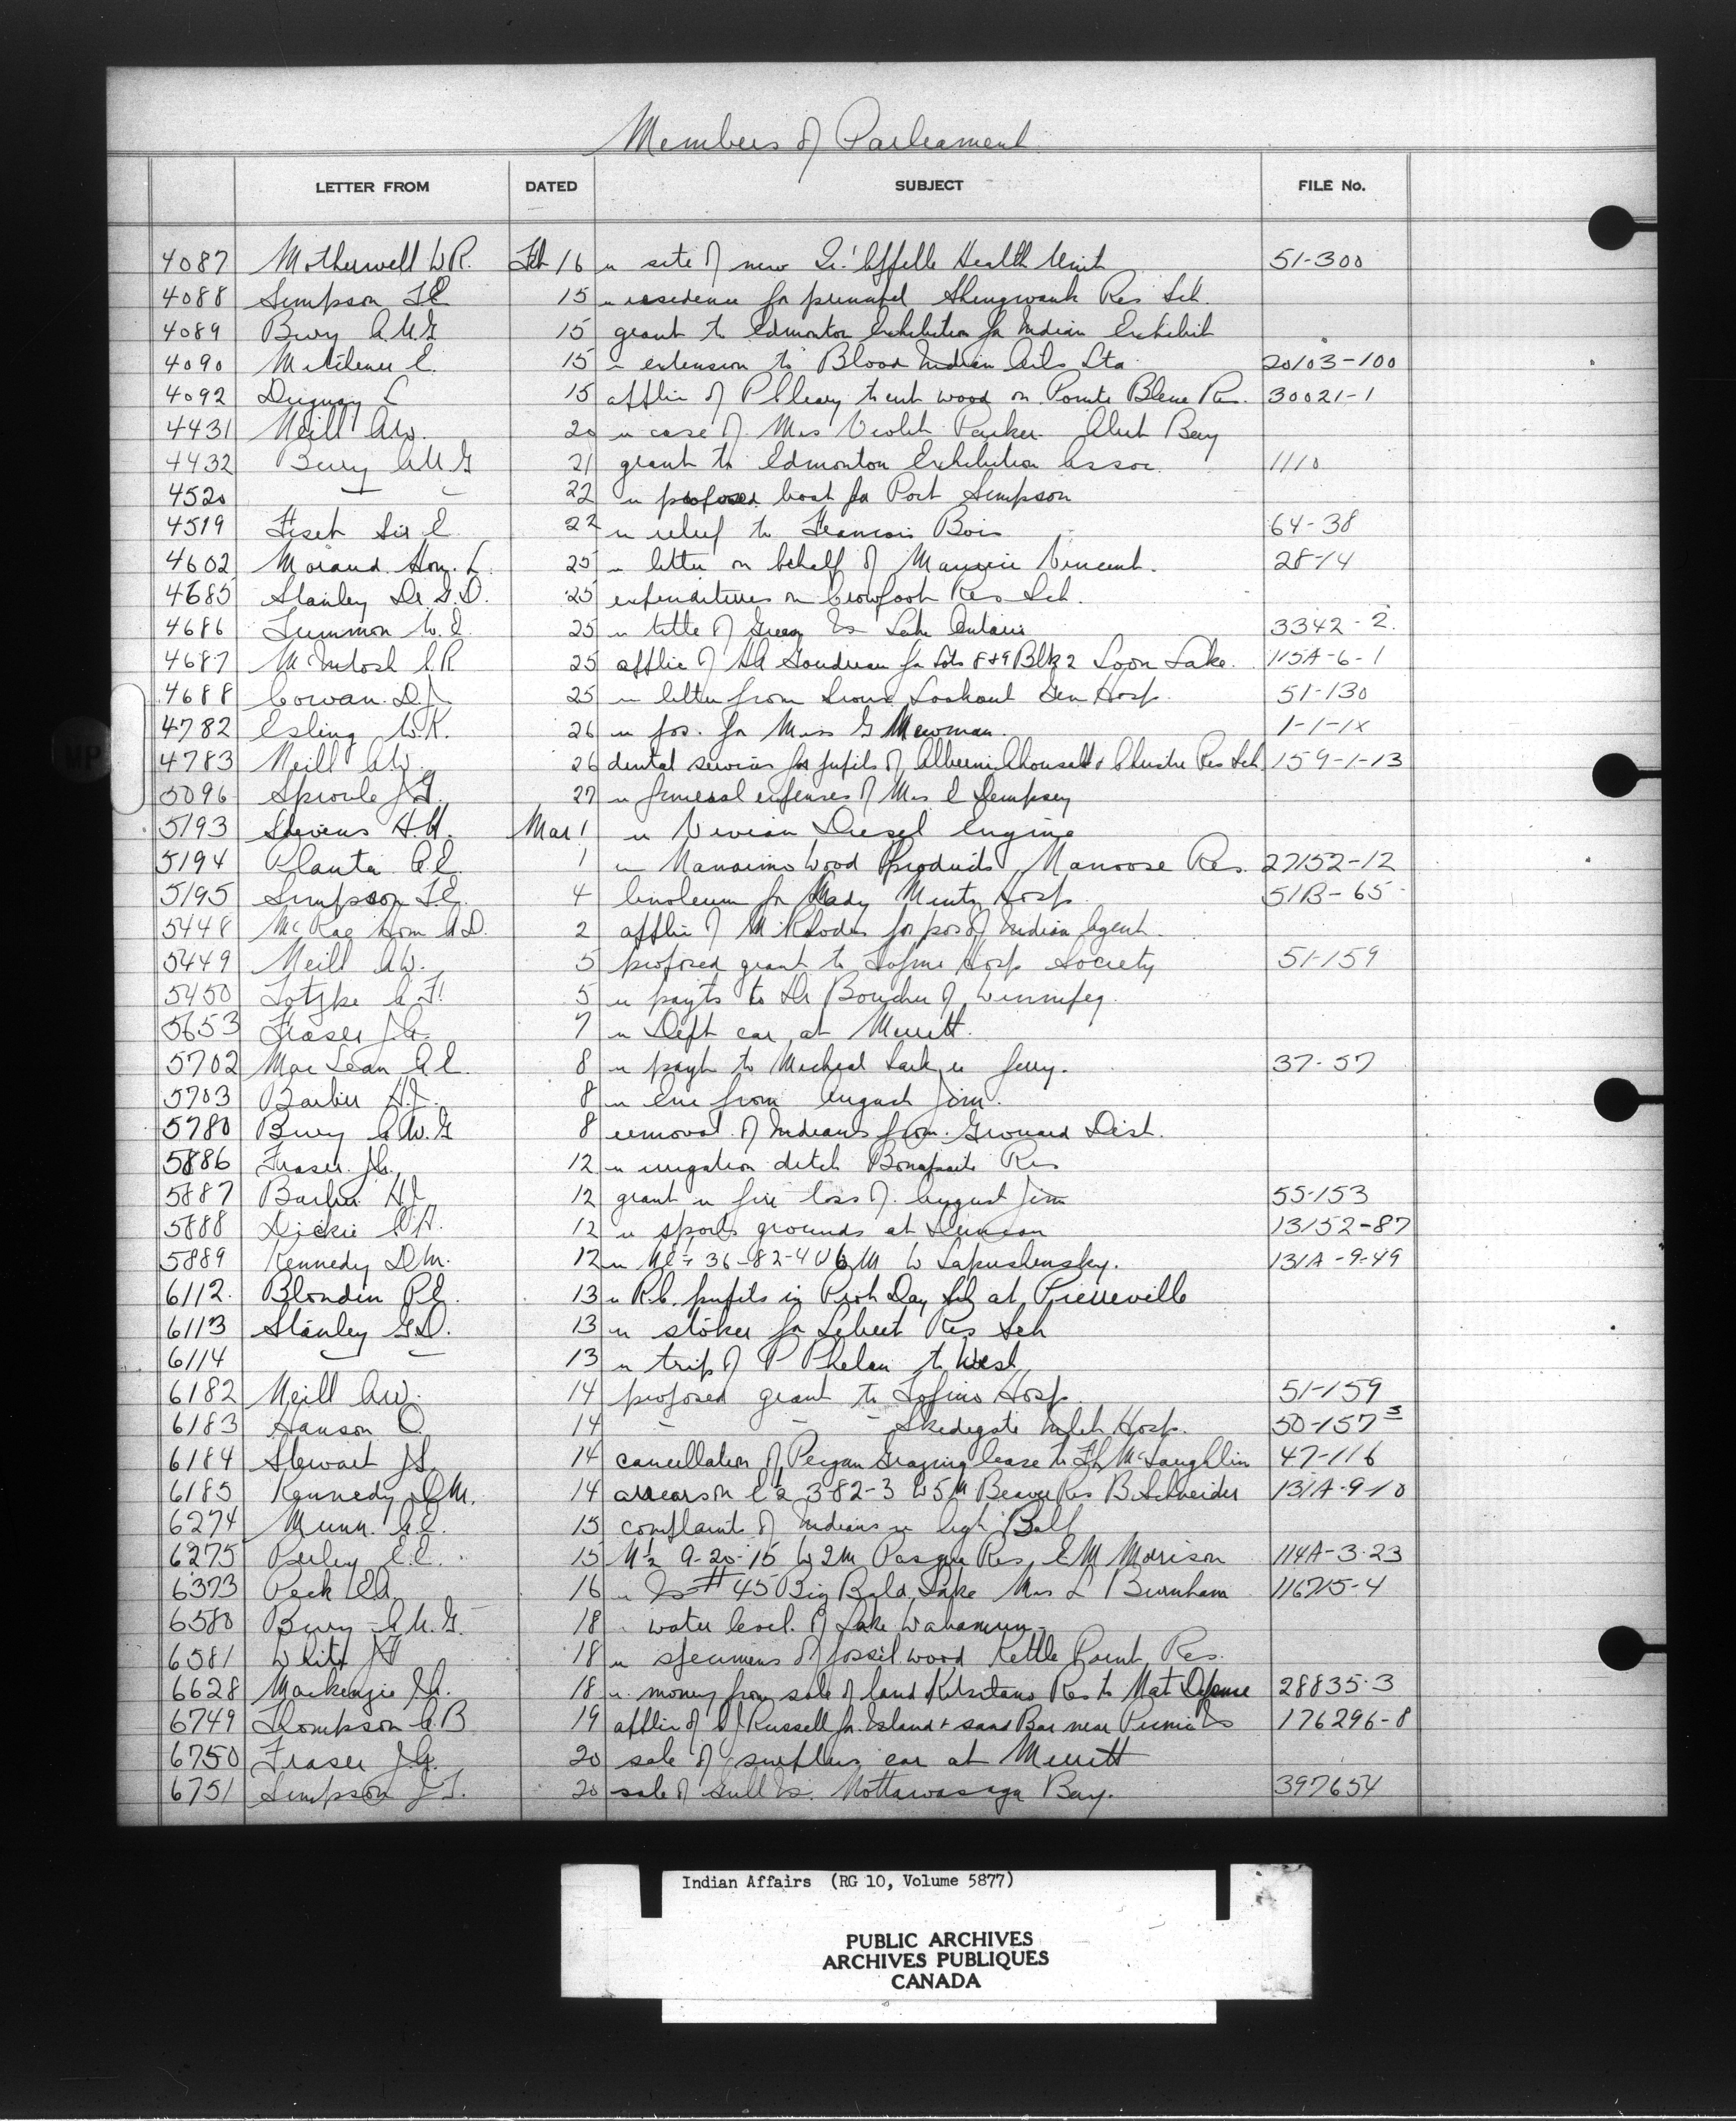 Members of Parliament
LETTER FROM DATED SUBJECT FILE No.
4087 Motherwell W.R. Feb 16 re site of new Qu'Appelle Health Unit 51-300
4088 Simpson T.E. 15 re residence for principal Shingwauk Res Sch.
4089 Bury A.U.G 15 grant to Edmonton Exhibition for Indian Exhibit
4090 15 re extension to Blood Indian Sta 20103-100
4092 Duguay L 15 applic of P Cleary to cut wood on Pointe Bleue Res. 30021-1
4431 Neill A.W. 20 re case of Mrs Violet Parker Alert Bay
4432 Bury A.U.G 21 grant to Edmonton Exhibition Assoc. 1110
4520 " " 22 re proposed boat for Port Simpson
4519 Fiset Sir E. 22 re relief to Francois Bois 64-38
4602 Morand Hon. L. 25 re letter on behalf of Maurice Vincent. 28-14
4685 Stanley Dr G.D. 25 expenditures on Crowfoot Res Sch.
4686 Tummon W.E. 25 re title of Green Is Lake Ontario 3342-2.
4687 McIntosh C.R 25 applic of Goudreau for Lots 8+9 Blk 2 Loon Lake. 115A-6-1
4688 Cowan D.J. 25 re letter from Sioux Lookout Gen Hosp. 51-130
4782 Esling W.K. 26 re pos. for Miss G Newman. 1-1-1X
4783 Neill A.W. 26 dental services for pupils of Alberni Ahousaht & Christie Res Sch. 159-1-13
5096 Sproule J.T. 27 re funeral expenses of Mrs E Dempsey
5193 Stevens H.H. Mar 1 re Vivian Diesel Engine
5194 Planta A.E. 1 re Nanaimo Wood Products, Nanoose Res. 27152-12
5195 Simpson T.E. 4 linoleum for Lady Minto Hosp 51B-65
5448 McRae Hon A.D. 2 applic of M Rhodes for pos of Indian Agent.
5449 Neill A.W. 5 proposed grant to Tofino Hosp Society 51-159
5450 Totzke A.F. 5 re payts to Dr Boucher of Winnipeg.
5653 Fraser J.A. 7 re Dept car at Merritt.
5702 MacLean A.E. 8 re payt to Micheal re ferry. 37-57
5703 Barber H.J. 8 re from August Jim.
5780 Bury A.U.G 8 removal of Indians from Grouard Dist.
5886 Fraser J.A. 12 re irrigation ditch Bonaparte Res
5887 Barber H.J 12 grant re fire loss of August Jim 55-153
5888 Dickie C.H. 12 re sports grounds at Duncan 13152-87
5889 Kennedy D.M. 12 re NE¼ 36-82-4 W6M W Lapushensky. 131A-9-49
6112. Blondin P.E. 13 re R.C. pupils in Prot Day Sch at Pierreville
6113 Stanley G.D. 13 re stoker for Lebret Res Sch
6114 " " 13 re trip of P Phelan to West
6182 Neill A.W. 14 proposed grant to Tofino Hosp. 51-159
6183 Hanson O. 14 " " " Skidegate Inlet Hosp. 50-157 3
6184 Stewart J.S. 14 cancellation of Peigan Grazing lease to McLaughlin 47-116
6185 Kennedy D.M. 14 arrears on E½ 3-82-3 W5M Beaver Res B. Schneider 131A-9-10
6274 Munn A.E. 15 complaints of Indians re Ball
6275 Perley E.E. 15 N½ 9-20-15 W2M Pasqua Res, E M Morrison 114A-3-23
6373 Peck E.A. 16 re Is # 45 Big Bald Lake Mrs L Burnham 116715-4
6580 Bury A.U.G. 18 " water level of Lake Wabamun
6581 White J.F 18 re specimens of fossil wood Kettle Point Res.
6628 Mackenzie I.A. 18 re money from sale of land Kitsilano Res to Nat Defense 28835-3
6749 Thompson A.B 19 applic of J Russell for Island & sand Bar near Picnic Is 176296-8
6750 Fraser J.A. 20 sale of surplus car at Merritt
6751 Simpson J.T. 20 sale of Gull Is. Nottawasaga Bay. 397654
Indian Affairs (RG 10, Volume 5877)
PUBLIC ARCHIVES
ARCHIVES PUBLIQUES
CANADA